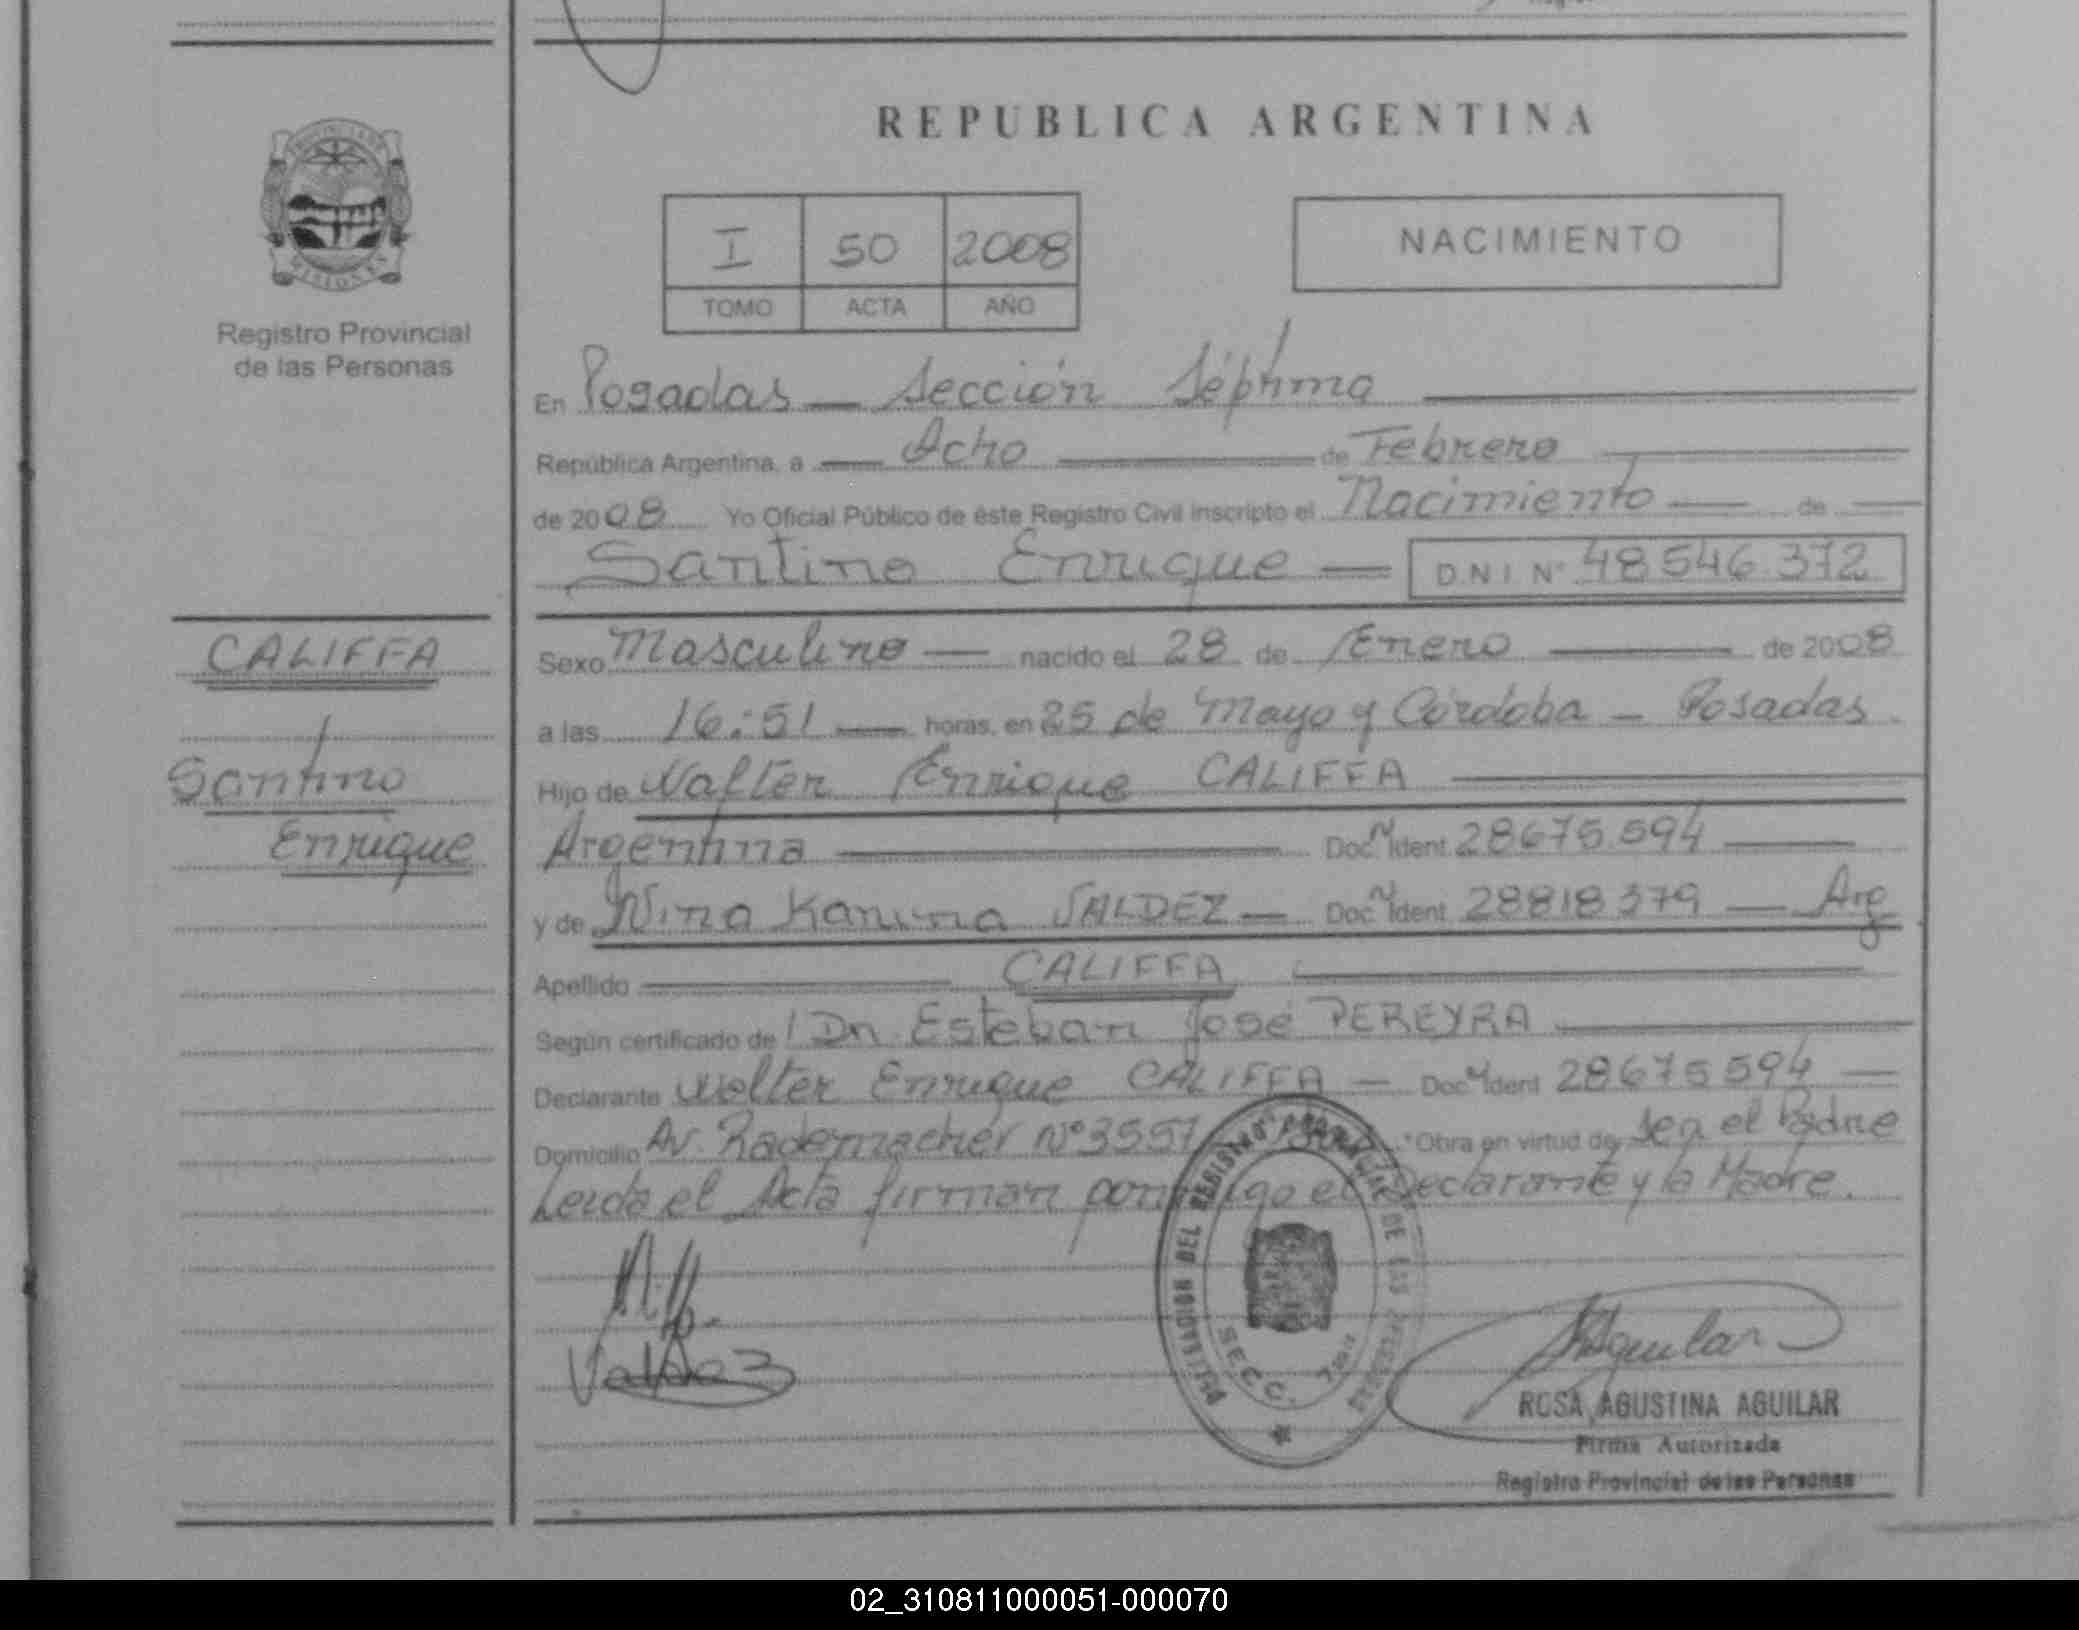 REPUBLICA ARGENTINA
PROVINCIA DE
MISIONES
Registro Provincial
de las Personas
I 50 2008
TOMO ACTA AÑO
NACIMIENTO
En Posadas — Sección Séptima
República Argentina, a Ocho de Febrero
de 2008 Yo Oficial Público de éste Registro Civil inscripto el Nacimiento de
Santino Enrique — D N I Nº 48 546 372
CALIFFA
Santino
Enrique
Sexo Masculino — nacido el 28 de Enero de 2008
a las 16:51 — horas, en 25 de Mayo y Córdoba - Posadas.
Hijo de Walter Enrique CALIFFA
Argentina Doc. Ident. 28675.594
y de Nina Karina VALDEZ — Doc. Ident. 28818379 — Arg
Apellido CALIFFA
Según certificado de Dn Esteban José PEREYRA
Declarante Walter Enrique CALIFFA — Doc. Ident 28675594 —
Domicilio Av. Rademacher Nº 3557 Obra en virtud de Ser el Padre
Leida el Acta firman conmigo el Declarante y la Madre.
Valdez
DELEGACION DEL REGISTRO PROVINCIAL DE LAS PERSONAS
SECC.
Aguilar
ROSA AGUSTINA AGUILAR
Firma Autorizada
Registro Provincial de las Personas
02_310811000051-000070